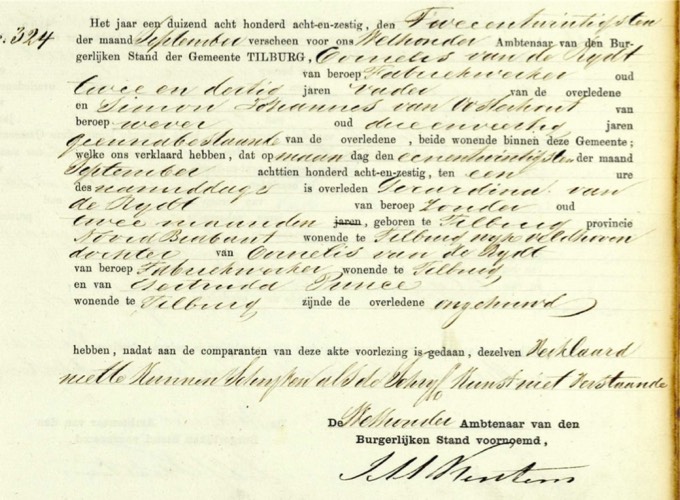 324
Het jaar een duizend acht honderd acht-en-zestig, den Tweeentwintigsten
der maand September verscheen voor ons Wethouder Ambtenaar van den Bur-
gerlijken Stand der Gemeente TILBURG, Cornelis van de Rydt
van beroep Fabriekwerker oud
twee en dertig jaren vader van de overledene
en Simon Johannes van Oosterhout van
beroep wever oud drie en veertig jaren
geennabestaande van de overledene, beide wonende binnen deze Gemeente;
welke ons verklaard hebben, dat op maan dag den eenentwintigsten der maand
September achttien honderd acht-en-zestig, ten een ure
des namiddags is overleden Gerardina van
de Rydt van beroep Zonder oud
twee maanden jaren, geboren te Tilburg provincie
Noord Braband wonende te Tilburg wyk Veldhoven
dochter van Cornelis van de Rydt
van beroep Fabriekwerker wonende te Tilburg
en van Gertruda
wonende te Tilburg zijnde de overledene ongehuwd
hebben, nadat aan de comparanten van deze akte voorlezing is gedaan, dezelven Verklaard
niette Kunnen Schryven als de Schryf Kunst niet Verstaande
De Wethouder Ambtenaar van den
Burgerlijken Stand voornoemd,